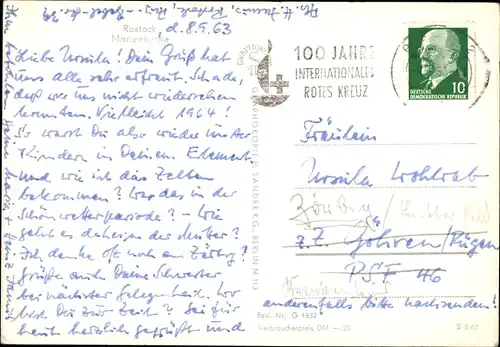 Rostock
Marienkirche
d. 8.9.63
Liebe Ursula! Dein Gruß hat
uns alle sehr erfreut. Schade
daß wir uns nicht wiedersehen
konnten. Vielleicht 1964!
So warst Du also wieder mit
Kindern in Deinem Element
und wie ist das Zelten
bekommen? War das in der
Schönwetterperiode? – Wie
geht es daheim der Mutter?
Ich denke oft noch an
Grüße auch Deine Schwester
bei nächster Gelegenheit. Wo
bist Du zur Zeit? Sei für
heute herzlich gegrüßt und
GRAPHOKOPIE H. SANDER KG, BERLIN N 113
100 JAHRE
INTERNATIONALES
ROTES KREUZ
10
DEUTSCHE
DEMOKRATISCHE REPUBLIK
Fräulein
Ursula Wohlrab
z.Z. Göhren/Rügen
PSF 46
anderenfalls bitte nachsenden!
Best.-Nr. G 4832
Verbraucherpreis DM —,20